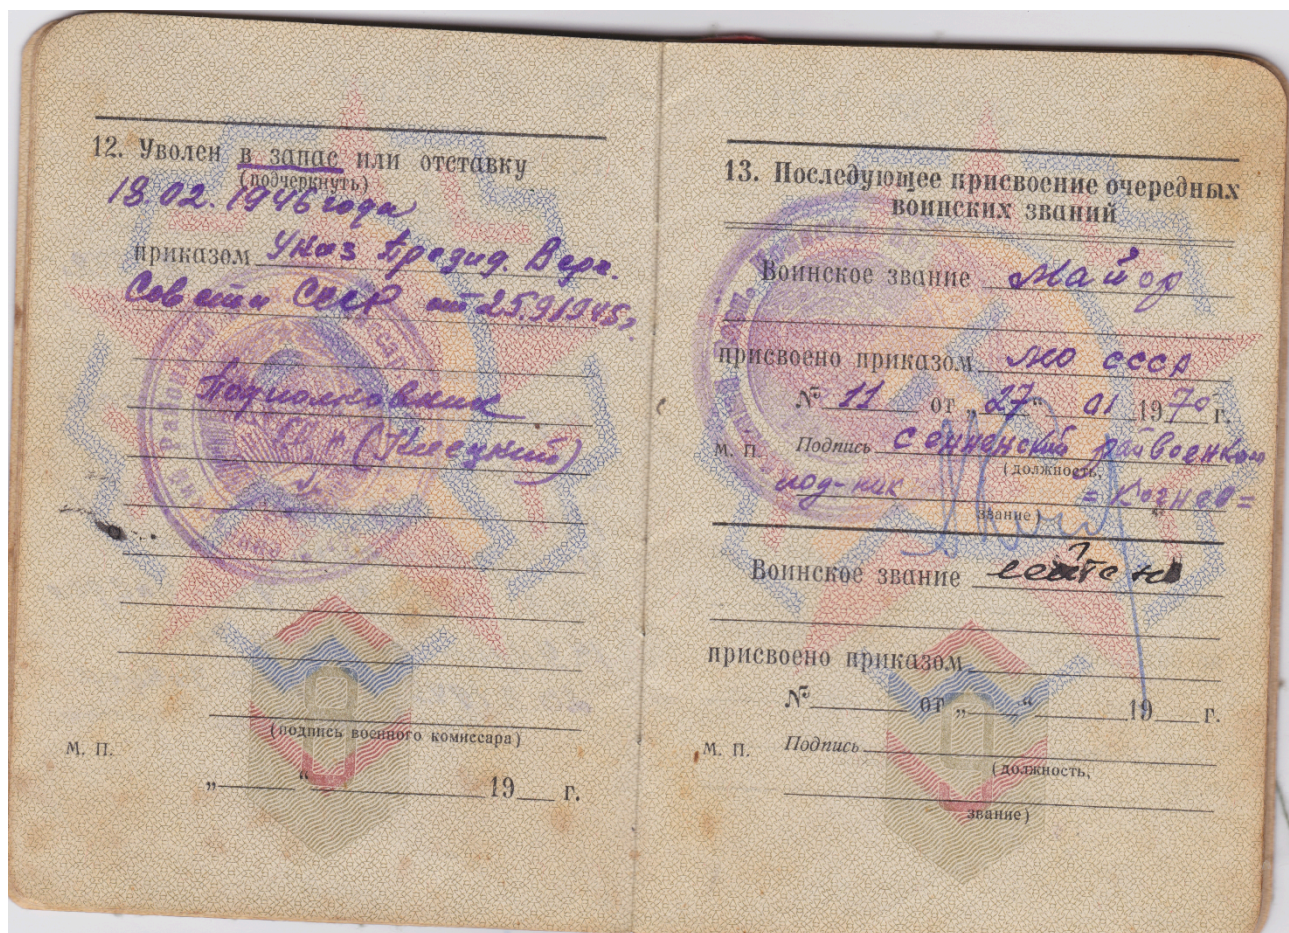 12. Уволен в запас или отставку
(подчеркнуть)
18.02.1946 года
приказом Указ Презид. Верх.
Совета СССР от 25.9 1945г
Подполковник
(Клецкий)
(подпись военного комиссара)
М. П.
„ “ 19 г.
13. Последующее присвоение очередных
воинских званий
Воинское звание майор
присвоено приказом МО СССР
№ 11 от „27“ 01 1970 г.
М. П. Подпись Сенненский райвоенком
(должность,
под-ник =Кочнев=
звание)
Воинское звание
присвоено приказом
№ от „ “ 19 г.
М. П. Подпись
(должность,
звание)